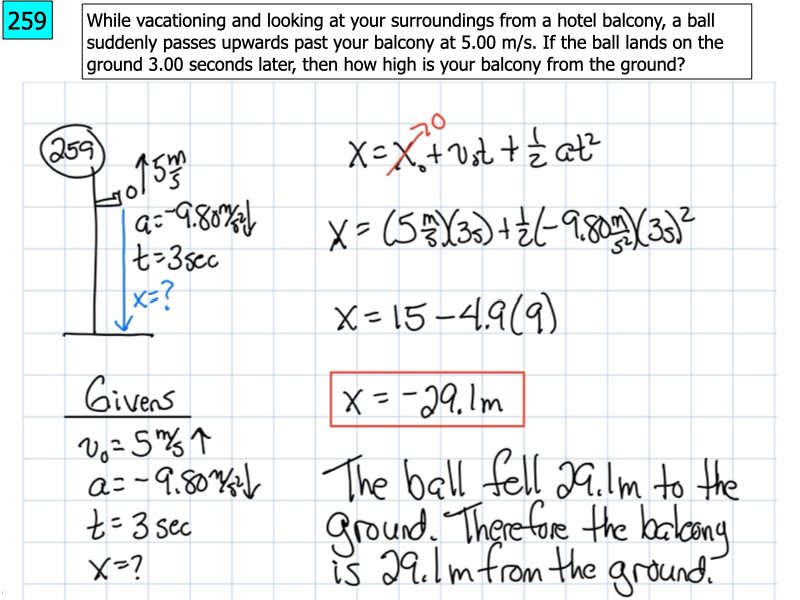 259
While vacationing and looking at your surroundings from a hotel balcony, a ball
suddenly passes upwards past your balcony at 5.00 m/s. If the ball lands on the
ground 3.00 seconds later, then how high is your balcony from the ground?
259
↑5 m/s
a=-9.80m/s²↓
t=3sec
x=?
Givens
v₀=5 m/s ↑
a=-9.80 m/s²↓
t=3 sec
x=?
0
x=x₀+v₀t+½at²
x=(5 m/s)(3s)+½(-9.80 m/s²)(3s)²
x=15-4.9(9)
x=-29.1m
The ball fell 29.1m to the
ground. Therefore the balcony
is 29.1m from the ground.